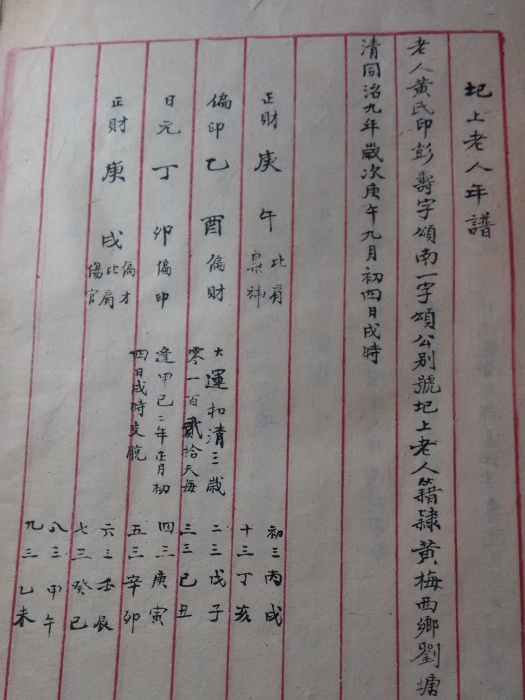 圯上老人年譜
老人黃氏印彭壽字頌南一字頌公別號圯上老人籍隸黃梅西鄉劉塘
清同治九年歲次庚午九月初四日戌時
正財 庚 午 比肩 梟神
偏印 乙 酉 偏財
日元 丁 卯 偏印
正財 庚 戌 偏才 比肩 傷官
大運扣清三歲
零一百貳拾天每
逢甲己二年正月初
四日戌時交脫
初三丙戌
十三丁亥
二三戊子
三三己丑
四三庚寅
五三辛卯
六三壬辰
七三癸巳
八三甲午
九三乙未